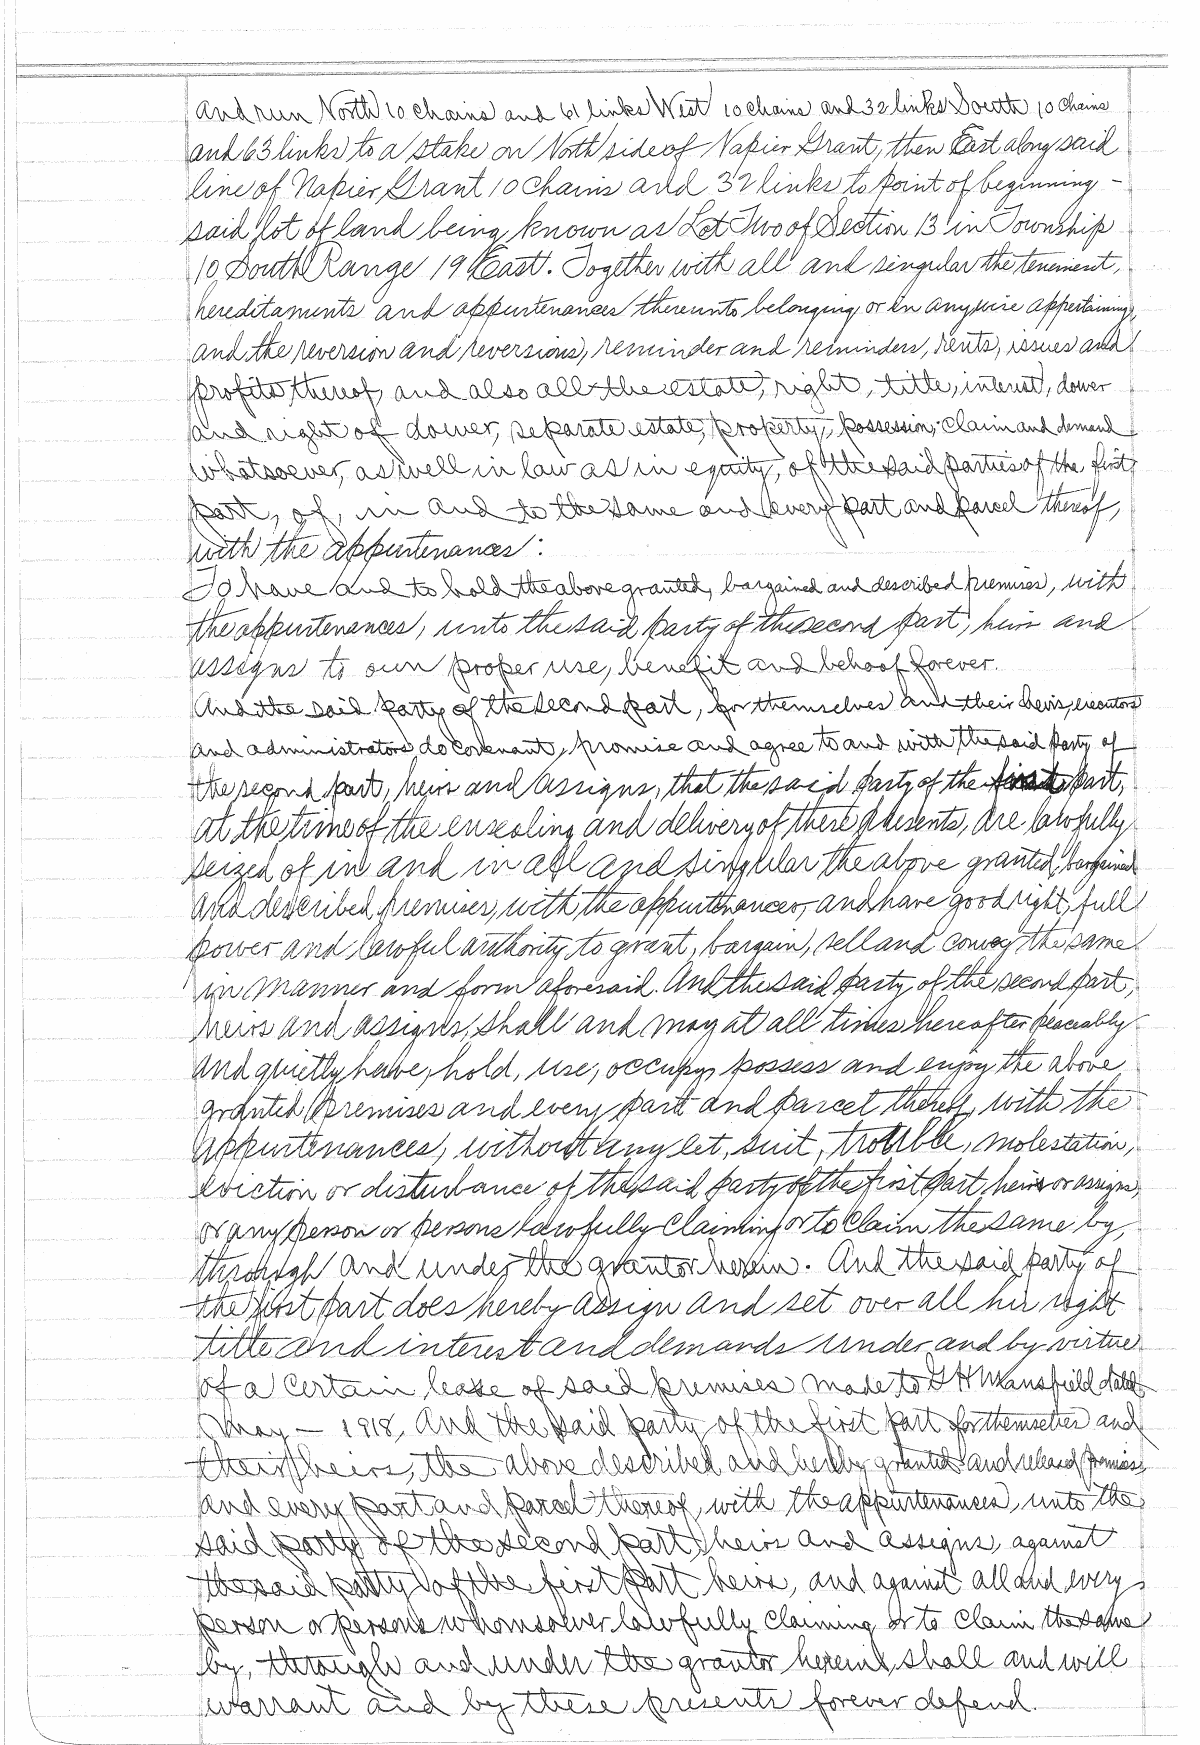 and run North 10 chains and 61 links West 10 chains and 32 links South 10 chains
and 63 links to a stake on North side of Napier Grant, then East along said
line of Napier Grant 10 chains and 32 links to point of beginning -
said lot of land being known as Lot Two of Section 13 in Township
10 South Range 19 East. Together with all and singular the tenement,
hereditaments and appurtenances thereunto belonging or in anywise appertaining,
and the reversion and reversions, reminder and reminders, rents, issues and
profits thereof, and also all the estate, right, title, interest, dower
and right of dower, separate estate, property, possession, claim and demand
whatsoever, as well in law as in equity, of the said parties of the first
part, of, in and to the same and every part and parcel thereof,
with the appurtenances:
To have and to hold the above granted, bargained and described premises, with
the appurtenances, unto the said party of the second part, heirs and
assigns to own proper use, benefit and behoof forever.
And the said party of the second part, for themselves and their heirs, executors
and administrators do covenant, promise and agree to and with the said party of
the second part, heirs and assigns, that the said party of the first part,
at the time of the ensealing and delivery of these presents, are lawfully
seized of in and in all and singular the above granted, bargained
and described premises, with the appurtenances, and have good right, full
power and lawful authority to grant, bargain, sell and convey the same
in manner and form aforesaid. And the said party of the second part,
heirs and assigns, shall and may at all times hereafter peaceably
and quietly have, hold, use, occupy, possess and enjoy the above
granted premises and every part and parcel thereof, with the
appurtenances, without any let, suit, trouble, molestation,
eviction or disturbance of the said party of the first part, heirs or assigns,
or any person or persons lawfully claiming or to claim the same by,
through and under the grantor herein. And the said party of
the first part does hereby assign and set over all her right
title and interest and demands under and by virtue
of a certain lease of said premises made to G H Mansfield dated
May - 1918, And the said party of the first part for themselves and
their heirs, the above described and hereby granted and released premises,
and every part and parcel thereof, with the appurtenances, unto the
said party of the second part, heirs and assigns, against
the said party of the first part heirs, and against all and every
person or persons whomsoever lawfully claiming or to claim the same
by, through and under the grantor herein, shall and will
warrant and by these presents forever defend.